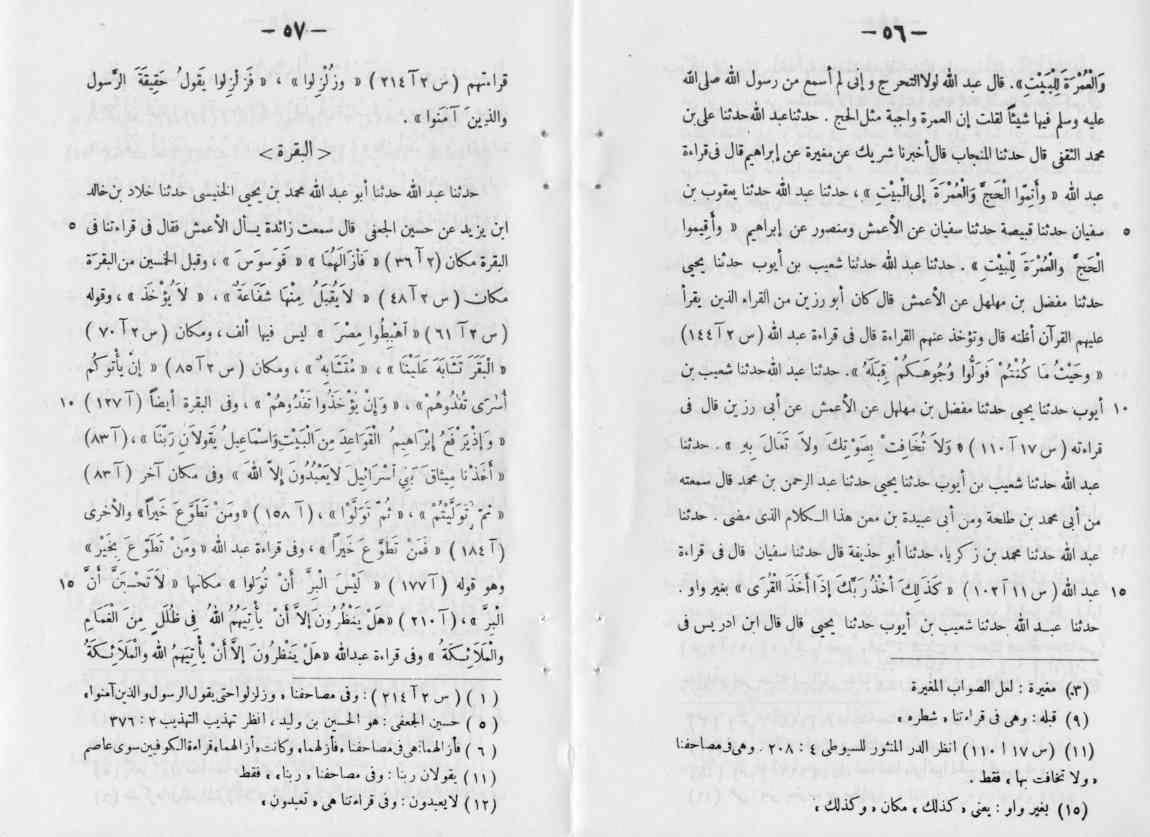 — ٥٦ —
وَالْعُمْرَةَ لِلْبَيْتِ». قال عبد الله لولا التحرج وإنى لم أسمع من رسول الله صلى الله
عليه وسلم فيها شيئاً لقلت إن العمرة واجبة مثل الحج . حدثنا عبد الله حدثنا على بن
محمد الثقفى قال حدثنا المنجاب قال أخبرنا شريك عن مغيرة عن إبراهيم قال فى قراءة
عبد الله « وَأَتِمُّوا الْحَجَّ وَالْعُمْرَةَ إلى الْبَيْتِ » ، حدثنا عبد الله حدثنا يعقوب بن
سفيان حدثنا قبيصة حدثنا سفيان عن الأعمش ومنصور عن إبراهيم « وَأَقِيموا ٥
الْحَجَّ والْعُمْرَةَ لِلْبَيْتِ » . حدثنا عبد الله حدثنا شعيب بن أيوب حدثنا يحيى
حدثنا مفضل بن مهلهل عن الأعمش قال كان أبو رزين من القراء الذين يقرأ
عليهم القرآن أظنه قال وتؤخذ عنهم القراءة قال فى قراءة عبد الله (س ٢ آ ١٤٤)
« وحَيْثُ مَا كُنْتُمْ فَوَلُّوا وُجُوهَكُمْ قِبَلَهُ ». حدثنا عبد الله حدثنا شعيب بن
أيوب حدثنا يحيى حدثنا مفضل بن مهلهل عن الأعمش عن أبى رزين قال فى ١٠
قراءته (س ١٧ آ ١١٠) « وَلاَ تُخَافِتْ بِصَوْتِكَ ولاَ تَعَالَ بِهِ » . حدثنا
عبد الله حدثنا شعيب بن أيوب حدثنا يحيى حدثنا عبد الرحمن بن محمد قال سمعته
من أبى محمد بن طلحة ومن أبى عبيدة بن معن هذا الكلام الذى مضى . حدثنا
عبد الله حدثنا محمد بن زكرياء حدثنا أبو حذيفة قال حدثنا سفيان قال فى قراءة
عبد الله (س ١١ آ ١٠٢) « كَذَلِكَ أَخْذُ رَبِّكَ إِذَا أَخَذَ الْقُرَى » بغير واو . ١٥
حدثنا عبد الله حدثنا شعيب بن أيوب حدثنا يحيى قال قال ابن ادريس فى
(٣) مغيرة : لعل الصواب المغيرة
(٩) قبله : وهى فى قراءتنا « شطره »
(١١) (س ١٧ آ ١١٠) انظر الدر المنثور للسيوطى ٤ : ٢٠٨ . وهى فى مصاحفنا
« ولا تخافت بها » فقط .
(١٥) بغير واو : يعنى « كذلك » مكان « وكذلك »
— ٥٧ —
قراءتهم (س ٢ آ ٢١٤) « وزُلْزِلوا » ، « فَزُلْزِلوا يَقولُ حَقِيقَةَ الرَّسول
والذِينَ آمَنُوا » .
< البقرة >
حدثنا عبد الله حدثنا أبو عبد الله محمد بن يحيى الخنيسى حدثنا خلاد بن خالد
ابن يزيد عن حسين الجعفى قال سمعت زائدة يسأل الأعمش فقال فى قراءتنا فى ٥
البقرة مكان (٢ آ ٣٦) « فأزالَهُمَا » « فَوَسْوَسَ » ، وقبل الخمسين من البقرة
مكان (س ٢ آ ٤٨) « لاَ يُقْبَلُ مِنْهَا شَفَاعَةٌ » ، « لاَ يُؤْخَذُ » ، وقوله
(س ٢ آ ٦١) « اهْبِطُوا مِصْرَ » ليس فيها ألف ، ومكان (س ٢ آ ٧٠)
« الْبَقَرَ تَشَابَهَ عَلَيْنَا » ، « مُتَشَابِهٌ » ، ومكان (س ٢ آ ٨٥) « إنْ يأْتُوكُم
أُسْرَى تُفْدُوهُمْ » ، « وَإِنْ يُؤْخَذُوا تَفْدُوهُمْ » ، وفى البقرة أيضاً (آ ١٢٧) ١٠
« وَإِذْ يَرْفَعُ إِبْرَاهِيمُ الْقَوَاعِدَ مِنَ الْبَيْتِ وَإِسْمَاعِيلُ يَقُولاَنِ رَبَّنَا » ، (آ ٨٣)
« أَخَذْنا مِيثاقَ بَنِي اسْرَائيل لاَ يَعْبُدُونَ إلاَّ الله » وفى مكان آخر (آ ٨٣)
« ثمَّ تَوَلَّيْتُمْ » ، « ثُمَّ تَوَلَّوْا » ، (آ ١٥٨) « وَمَنْ تَطَوَّعَ خَيْراً » والأخرى
(آ ١٨٤) « فَمَنْ تَطَوَّعَ خَيْراً » ، وفى قراءة عبد الله « وَمَنْ تَطَوَّعَ بِخَيْرٍ »
وهو قوله (آ ١٧٧) « لَيْسَ الْبِرَّ أَنْ تُوَلوا » مكانها « لاَ تَحْسَبَنَّ أَنَّ ١٥
الْبِرَّ » ، (آ ٢١٠) « هَلْ يَنْظُرُونَ إلاَّ أَنْ يأْتِيَهُمُ اللهُ فِى ظُلَلٍ مِنَ الغَمَامِ
والْمَلاَئِكَةُ » وفى قراءة عبد الله « هَلْ يَنْظُرونَ إلاَّ أَنْ يأْتيَهُمُ اللهُ والْمَلاَئِكَةُ
(١) (س ٢ آ ٢١٤) : وفى مصاحفنا « وزلزلوا حتى يقول الرسول والذين آمنوا »
(٥) حسين الجعفى : هو الحسين بن وليد ، انظر تهذيب التهذيب ٢ : ٣٧٦
(٦) فأزالهما : هى فى مصاحفنا « فأزلهما » وكانت « وأزالهما » قراءة الكوفيين سوى عاصم
(١١) يقولان ربنا : وفى مصاحفنا « ربنا » ، فقط
(١٢) لا يعبدون : وفى قراءتنا هى « تعبدون »